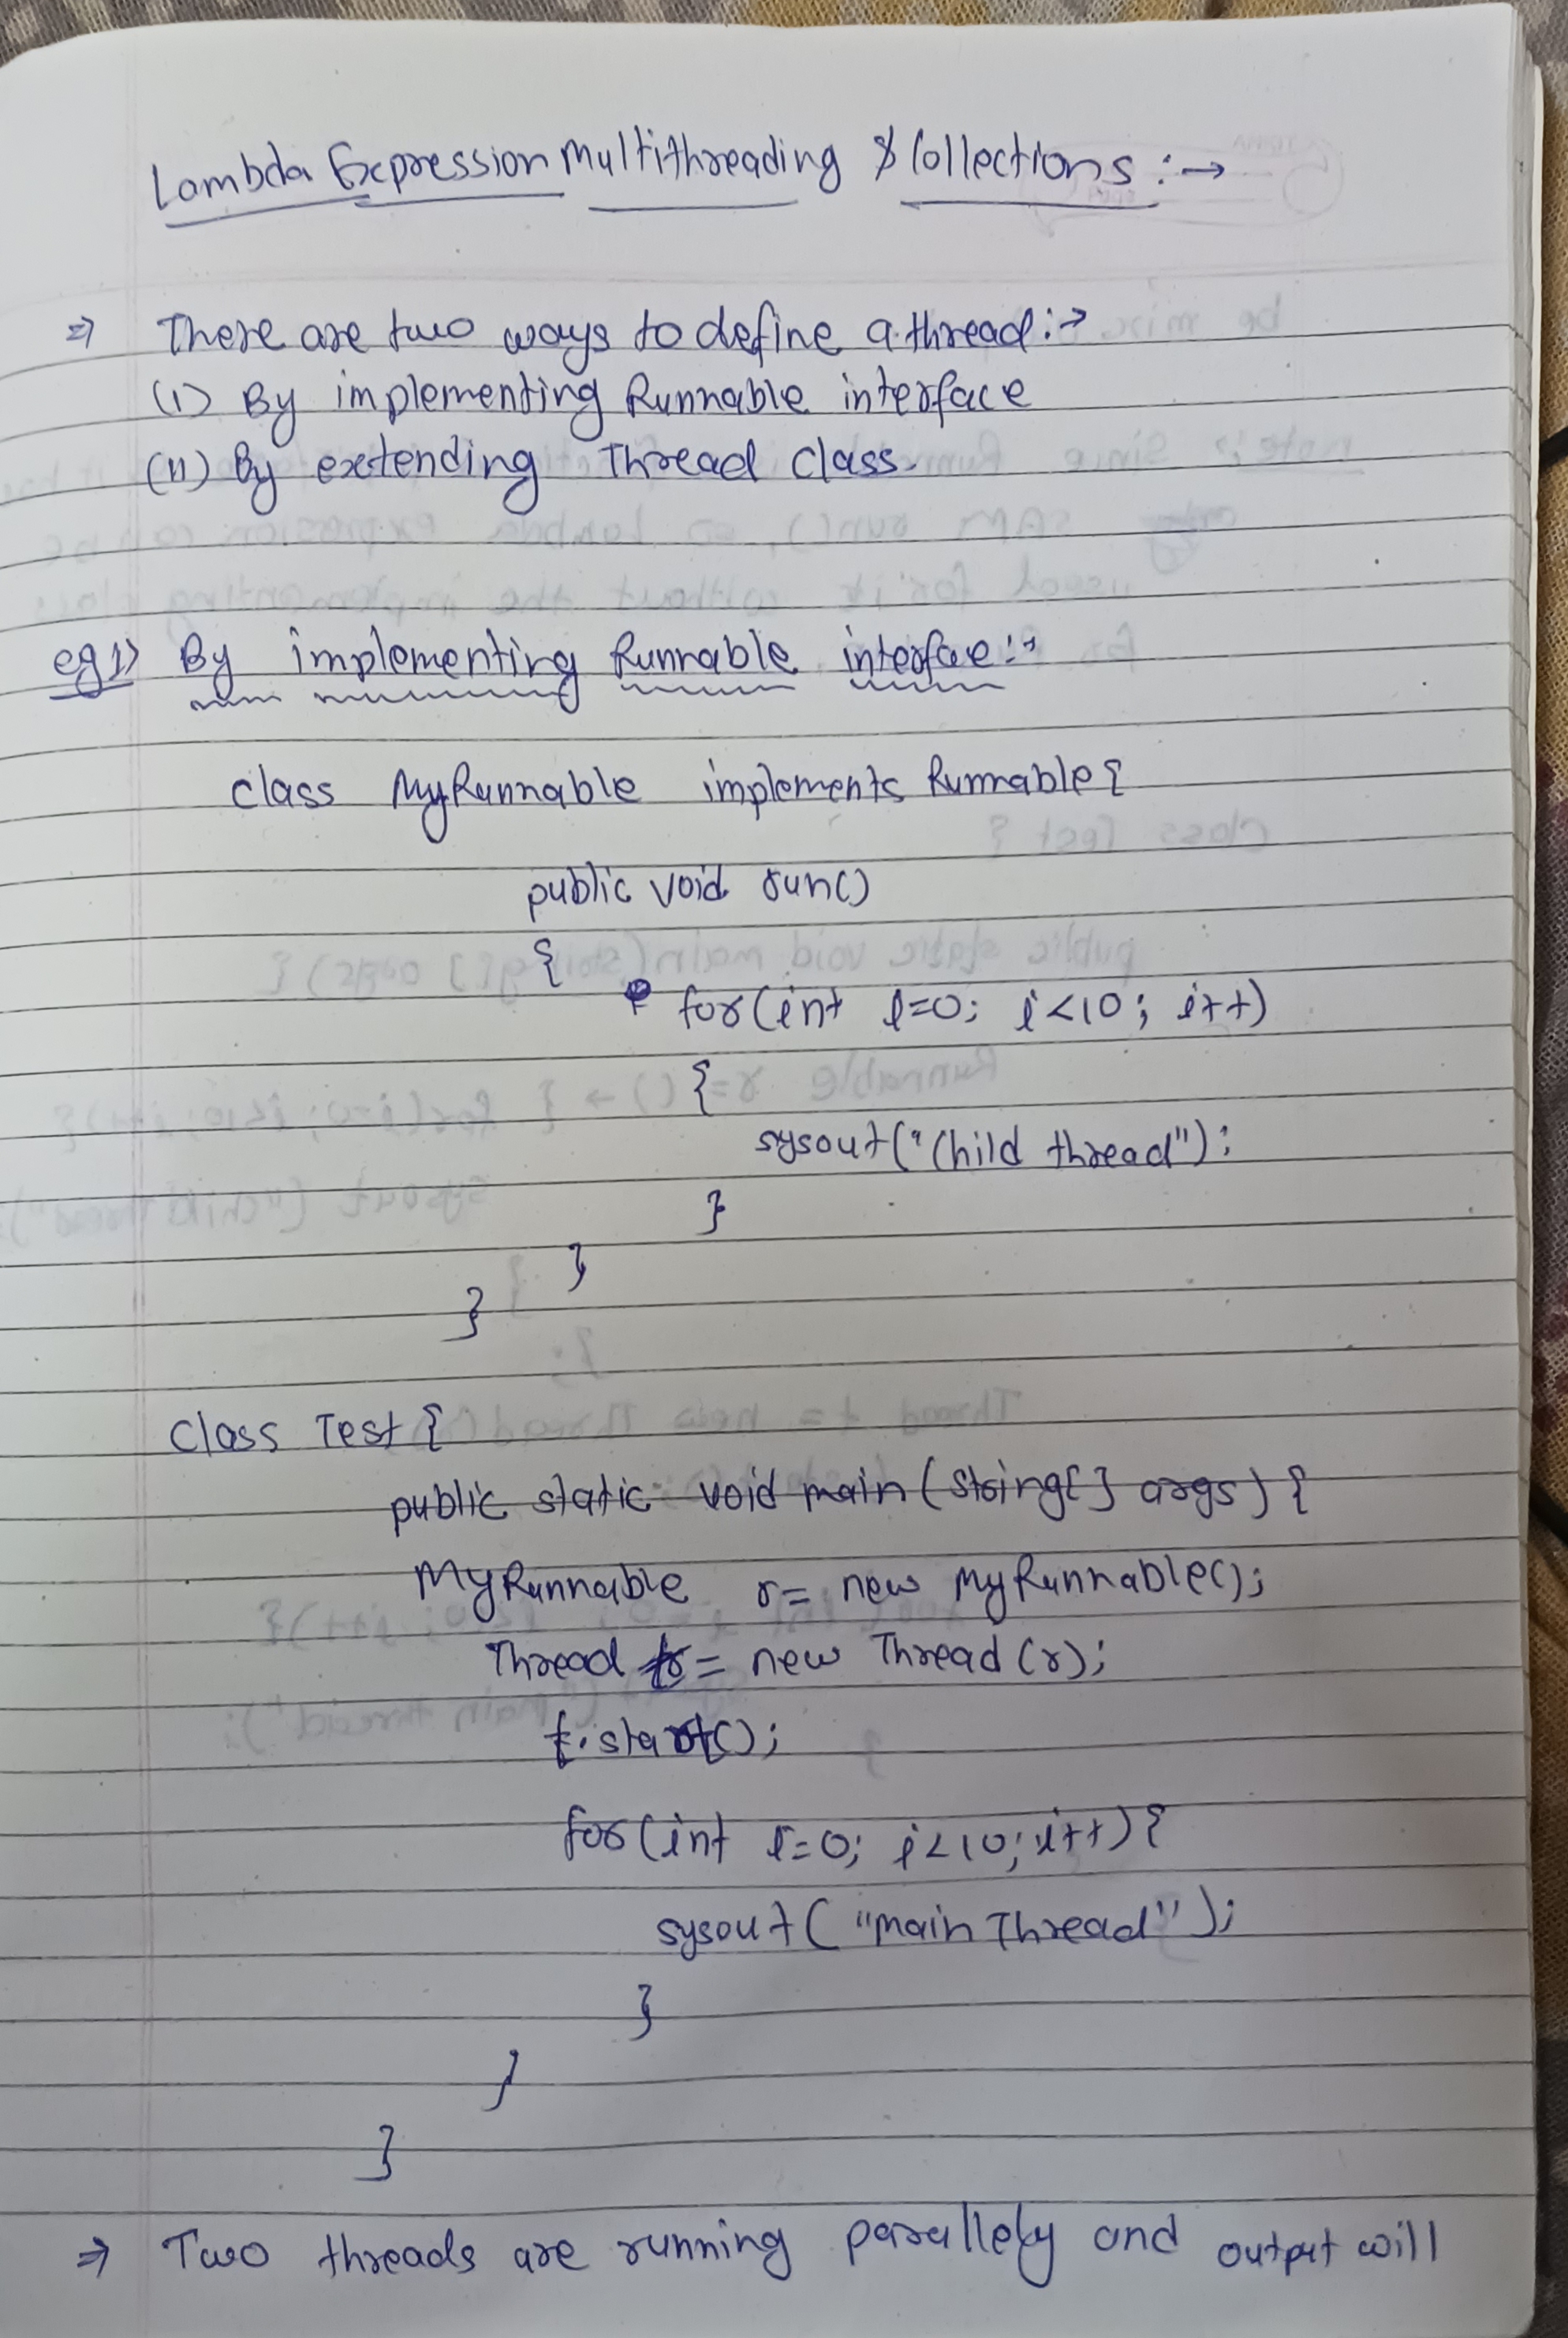 Lambda Expression Multithreading & Collections :→
⇒ There are two ways to define a thread :→
(i) By implementing Runnable interface
(ii) By extending Thread class.
eg 1) By implementing Runnable interface :→
class MyRunnable implements Runnable {
public void run()
{
for(int i=0; i<10; i++)
{
sysout("Child thread");
}
}
}
Class Test {
public static void main (String[] args) {
MyRunnable r = new MyRunnable();
Thread t = new Thread (r);
t.start();
for(int i=0; i<10; i++) {
sysout( "main Thread" );
}
}
}
⇒ Two threads are running parallely and output will